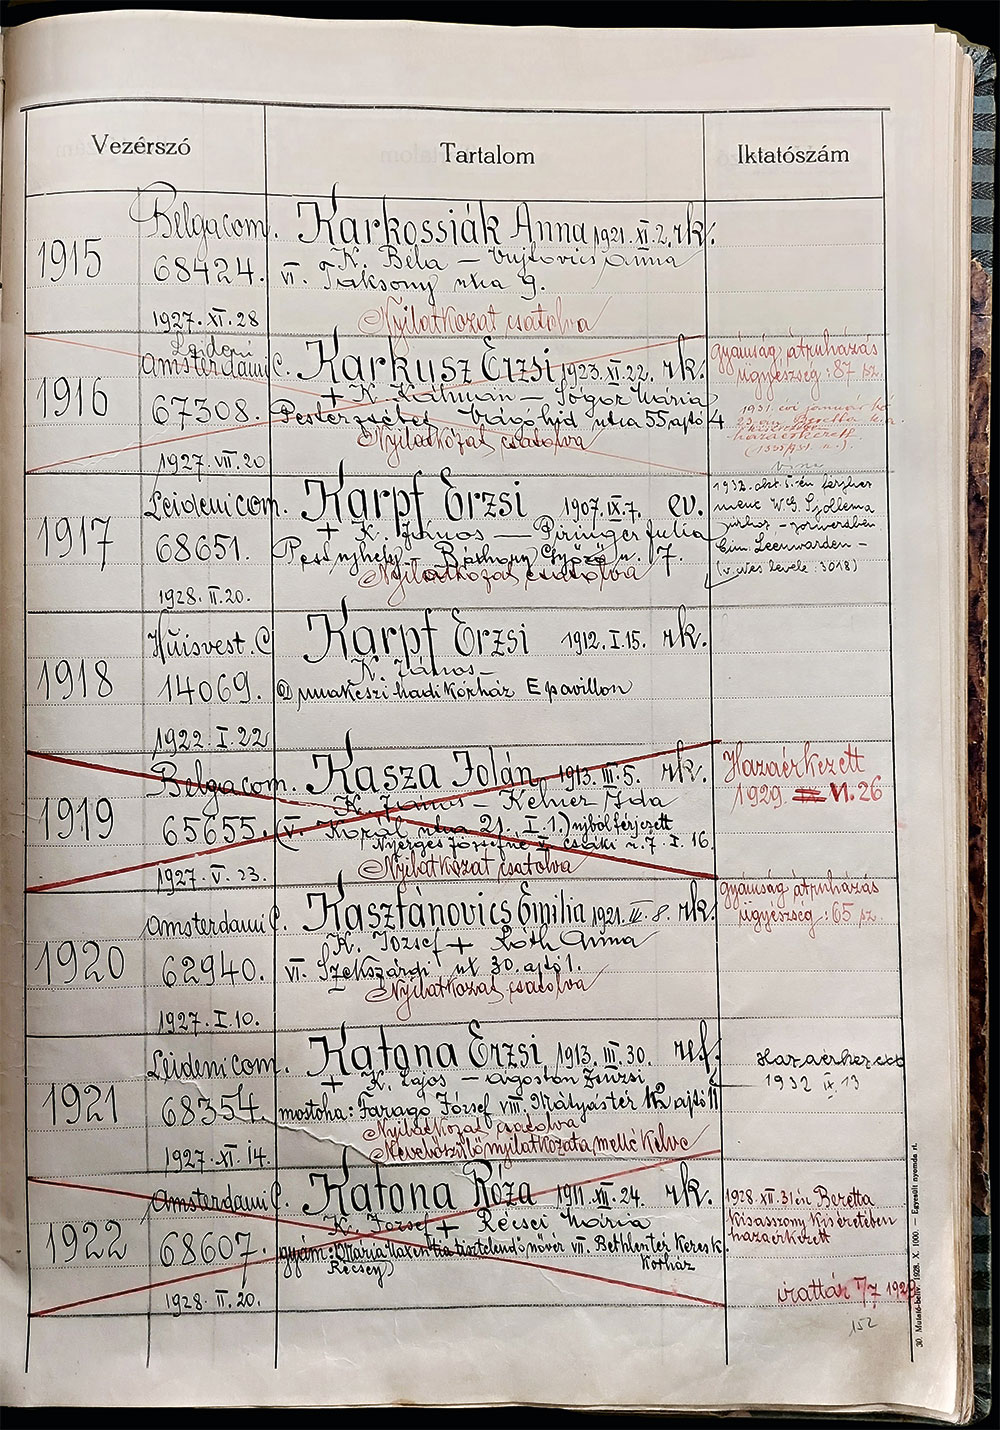 Vezérszó Tartalom Iktatószám
1915 Belgacom. Karkossiák Anna 1921. XI. 2. rk.
68424. K. Béla — Anna
VI. Taksony utca 9.
1927. XI. 28 Nyilatkozat csatolva
Leideni
1916 Amsterdami C. Karkusz Erzsi 1923. XI. 22. rk. gyámság átruházás
ügyészség: 87 sz.
67308. + K. Kálmán — Mária
Pesterzsébet Vágóhíd utca 55 ajtó 4
Nyilatkozat csatolva
1927. VII. 20
hazaérkezett
1917 Leideni com. Karpf Erzsi 1907. IX. 7. ev.
68651. + K. János — Piringer Julia
Báthory u. 17.
Nyilatkozat csatolva
1928. II. 20.
1932. okt. 5.-én férjhez
ment W. G.
Cím. Leenwarden –
levele: 3018)
1918 Huisvest. C Karpf Erzsi 1912. I. 15. rk.
14069. K. János –
hadi Kórház E pavillon
1922. I. 22
1919 Belgacom. Kasza Jolán 1913. III. 5. rk. Hazaérkezett
1929. VI. 26
65655. K. János – Kelner Ida
(V. Korál utca 21. I. 1.) ujból férjezett
Nyerges Józsefné V. Csáki u. 7. I. 16.
1927. V. 23. Nyilatkozat csatolva
1920 Amsterdami C. Kasztánovics Emilia 1921. III. 8. rk. gyámság átruházás
ügyészség: 65 sz.
62940. K. József + Róth Anna
VI. Szekszárdi ut 30. ajtó 1.
Nyilatkozat csatolva
1927. I. 10.
1921 Leideni com. Katona Erzsi 1913. III. 30. ref. Hazaérkezett
1932 IX. 13
68354. + K. Lajos – Ágoston Zsuzsi
mostoha: Faragó József VIII. Mátyás tér 12 ajtó 11
Nyilatkozat csatolva
Nevelőszülő nyilatkozata mellékelve
1927. XI. 14.
1922 Amsterdami C. Katona Róza 1911. XII. 24. rk. 1928. XII. 31én Beretta
kisasszony kíséretében
hazaérkezett
68607. K. József + Récsei Mária
gyám: Mária tisztelendő nővér VII. Bethlen tér Keresk.
Récsey Kórház
1928. II. 20.
irattár 7/7 1929
152
30. Mutató-beliv. 1928. X. 1000. — Egyesült nyomda rt.